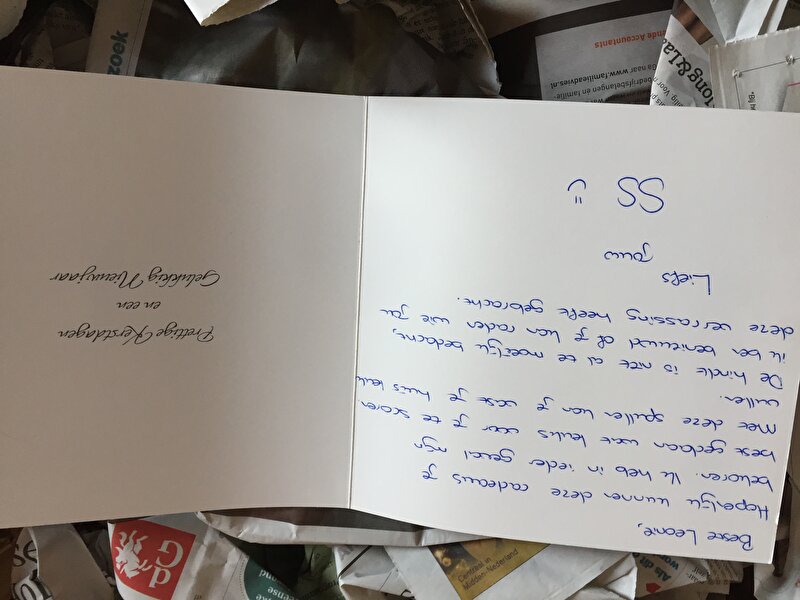 Prettige Kerstdagen
en een
Gelukkig Nieuwjaar
Beste Leonie,
Hopelijk kunnen deze cadeaus je
bekoren. Ik heb in ieder geval mijn
best gedaan wat leuks voor je te scoren.
Met deze spullen kan je vast je huis leuk
vullen.
De hindle is niet al te moeilijk bedacht,
ik ben benieuwd of je kan raden wie jou
deze verrassing heeft gebracht.
Liefs
jouw
SS
zoek
ende Accountants
Ga naar www.familieadvies.nl
bedrijfsbelangen en familie-
Tong&La
dG
Centraal in
Midden-Nederland